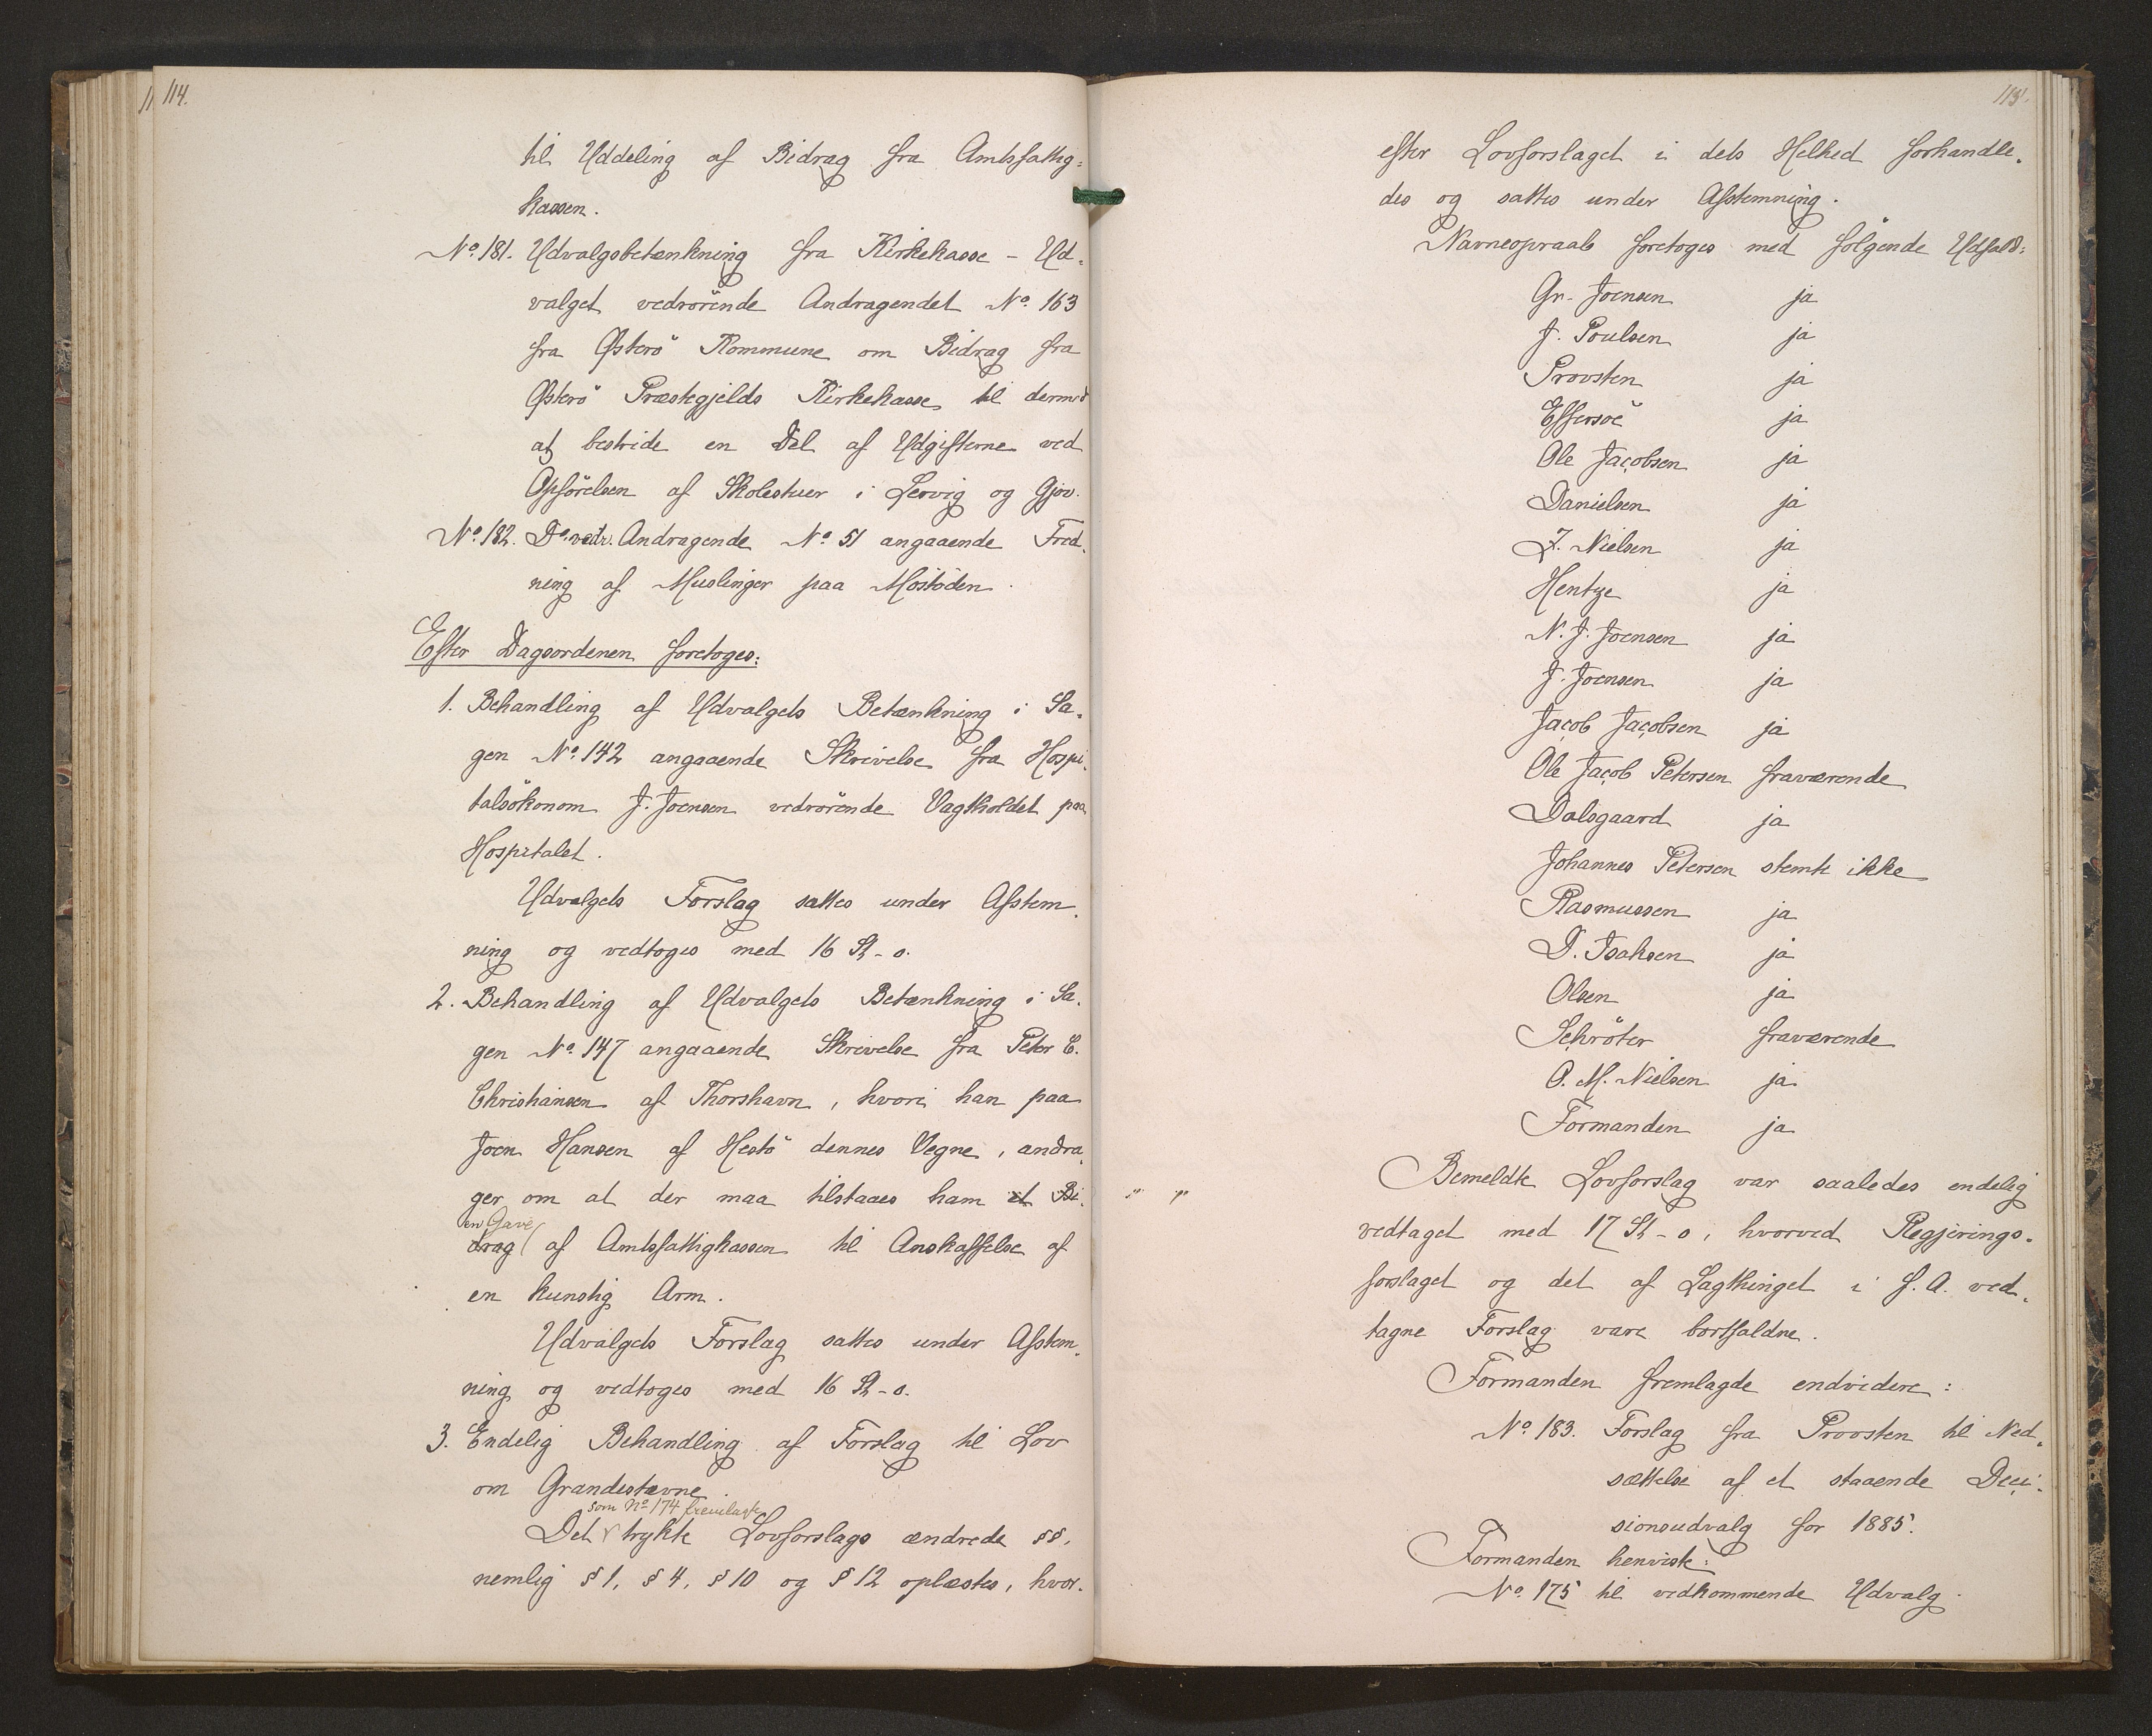 114.
til Uddeling af Bidrag fra Amtsfattig-
kassen.
No. 181. Udvalgsbetænkning fra Kirkekasse-Ud-
valget vedrörende Andragendet No. 163
fra Østerö Kommune om Bidrag fra
Østerö Præstegjelds Kirkekasse til dermed
at bestride en Del af Udgifterne ved
Opförelsen af Skolestuer i Lervig og Gjov.
No. 182. Do. vedr. Andragende No. 51 angaaende Fred-
ning af Muslinger paa
Efter Dagsordenen foretoges:
1. Behandling af Udvalgets Betænkning i Sa-
gen No. 142 angaaende Skrivelse fra Hospi-
talsökonom J. Joensen vedrörende Vagtholdet paa
Hospitalet.
Udvalgets Forslag sattes under Afstem-
ning og vedtoges med 16 St-0.
2. Behandling af Udvalgets Betænkning i Sa-
gen No. 147 angaaende Skrivelse fra Peter C.
Christiansen af Thorshavn, hvori han paa
Joen Hansen af Hestö dennes Vegne, andra-
ger om at der maa tilstaaes ham et Bi-
en Gave
drag af Amtsfattigkassen til Anskaffelse af
en kunstig Arm.
Udvalgets Forslag sattes under Afstem-
ning og vedtoges med 16 St-0.
3. Endelig Behandling af Forslag til Lov
om Grandestævne.
som No. 174 fremlagte
Det trykte Lovforslags ændrede §§,
nemlig § 1, § 4, § 10 og § 12 oplæstes, hvor-
115.
efter Lovforslaget i dets Helhed forhandle-
des og sattes under Afstemning.
Navneopraab foretoges med fölgende Udfald:
Gr. Joensen ja
J. Poulsen ja
Provsten ja
Effersöe ja
Ole Jacobsen ja
Danielsen ja
J. Nielsen ja
Hentze ja
N. J. Joensen ja
J. Joensen ja
Jacob Jacobsen ja
Ole Jacob Petersen fraværende
Dalsgaard ja
Johannes Petersen stemte ikke
Rasmussen ja
D. Isaksen ja
Olsen ja
Schröter fraværende
O. M. Nielsen ja
Formanden ja
Bemeldte Lovforslag var saaledes endelig
vedtaget med 17 St-0, hvorved Regjerings-
forslaget og det af Lagthinget i f. A. ved-
tagne Forslag vare bortfaldne.
Formanden fremlagde endvidere:
No. 183. Forslag fra Provsten til Ned-
sættelse af et staaende Deci-
sionsudvalg for 1885.
Formanden henviste:
No. 175 til vedkommende Udvalg.